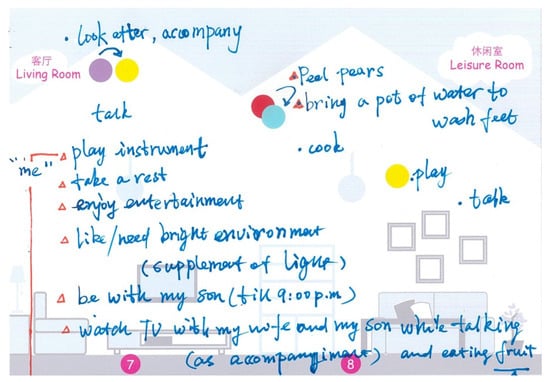 · look after, accompany
客厅
Living Room
休闲室
Leisure Room
Peel pears
bring a pot of water to
wash feet
talk
· cook
"me"
play instrument
take a rest
enjoy entertainment
· play
· talk
like/need bright environment
(supplement of light)
be with my son (till 9:00 p.m)
watch TV with my wife and my son while talking
(as accompanyiment) and eating fruit
7
8